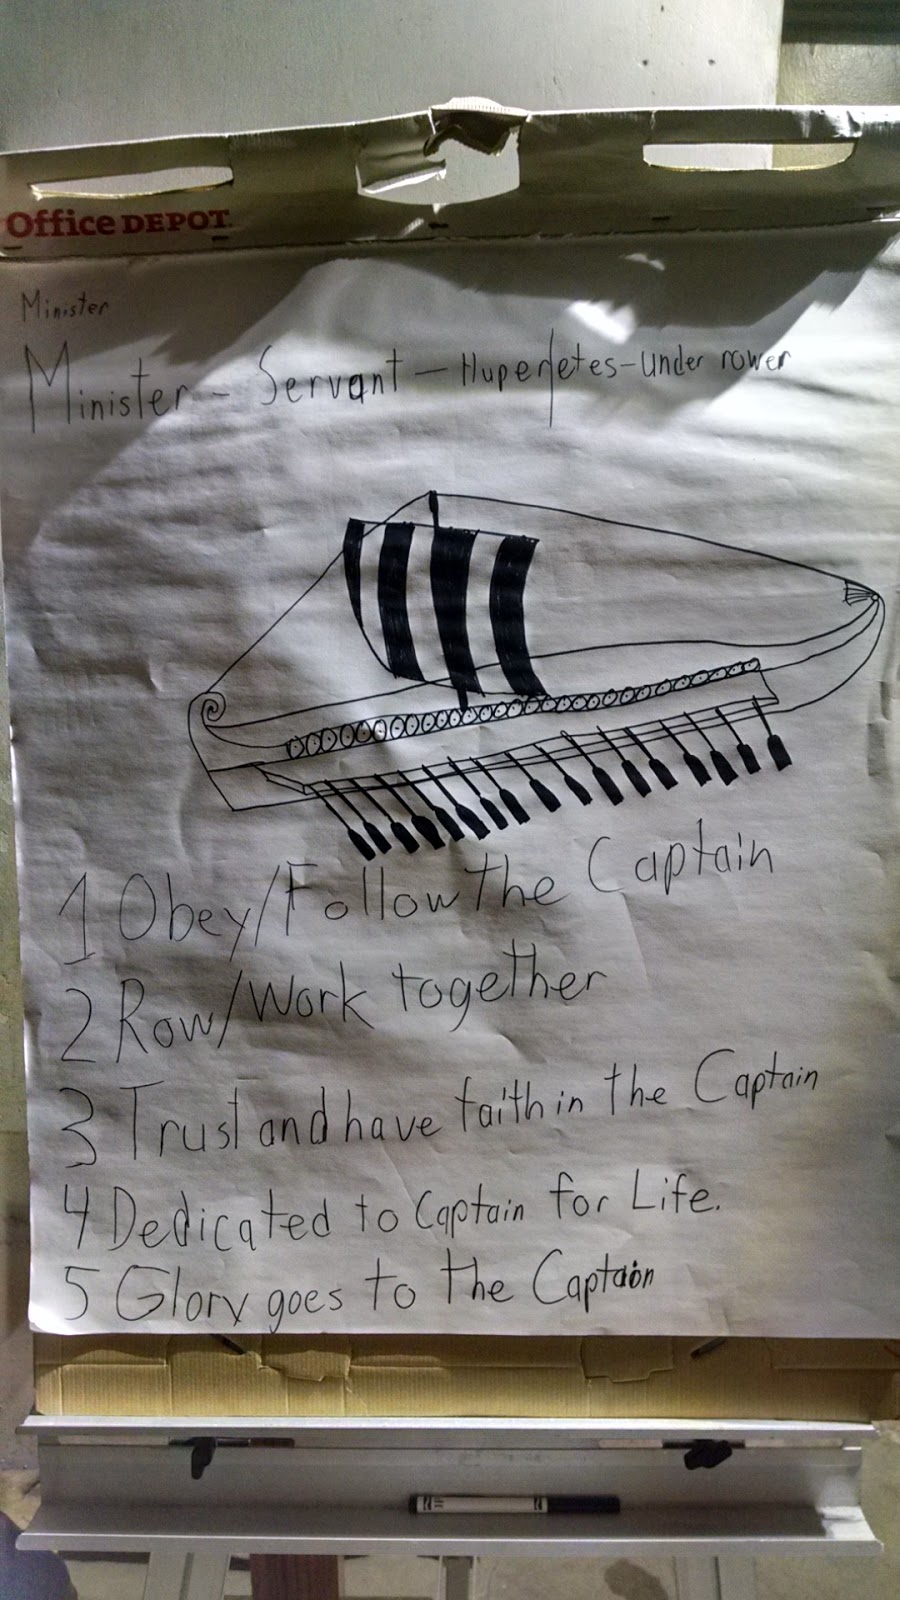 Office DEPOT
Minister
Minister - Servant - Huperetes - Under rower
1 Obey/Follow the Captain
2 Row/Work together
3 Trust and have faith in the Captain
4 Dedicated to Captain for Life.
5 Glory goes to the Captain